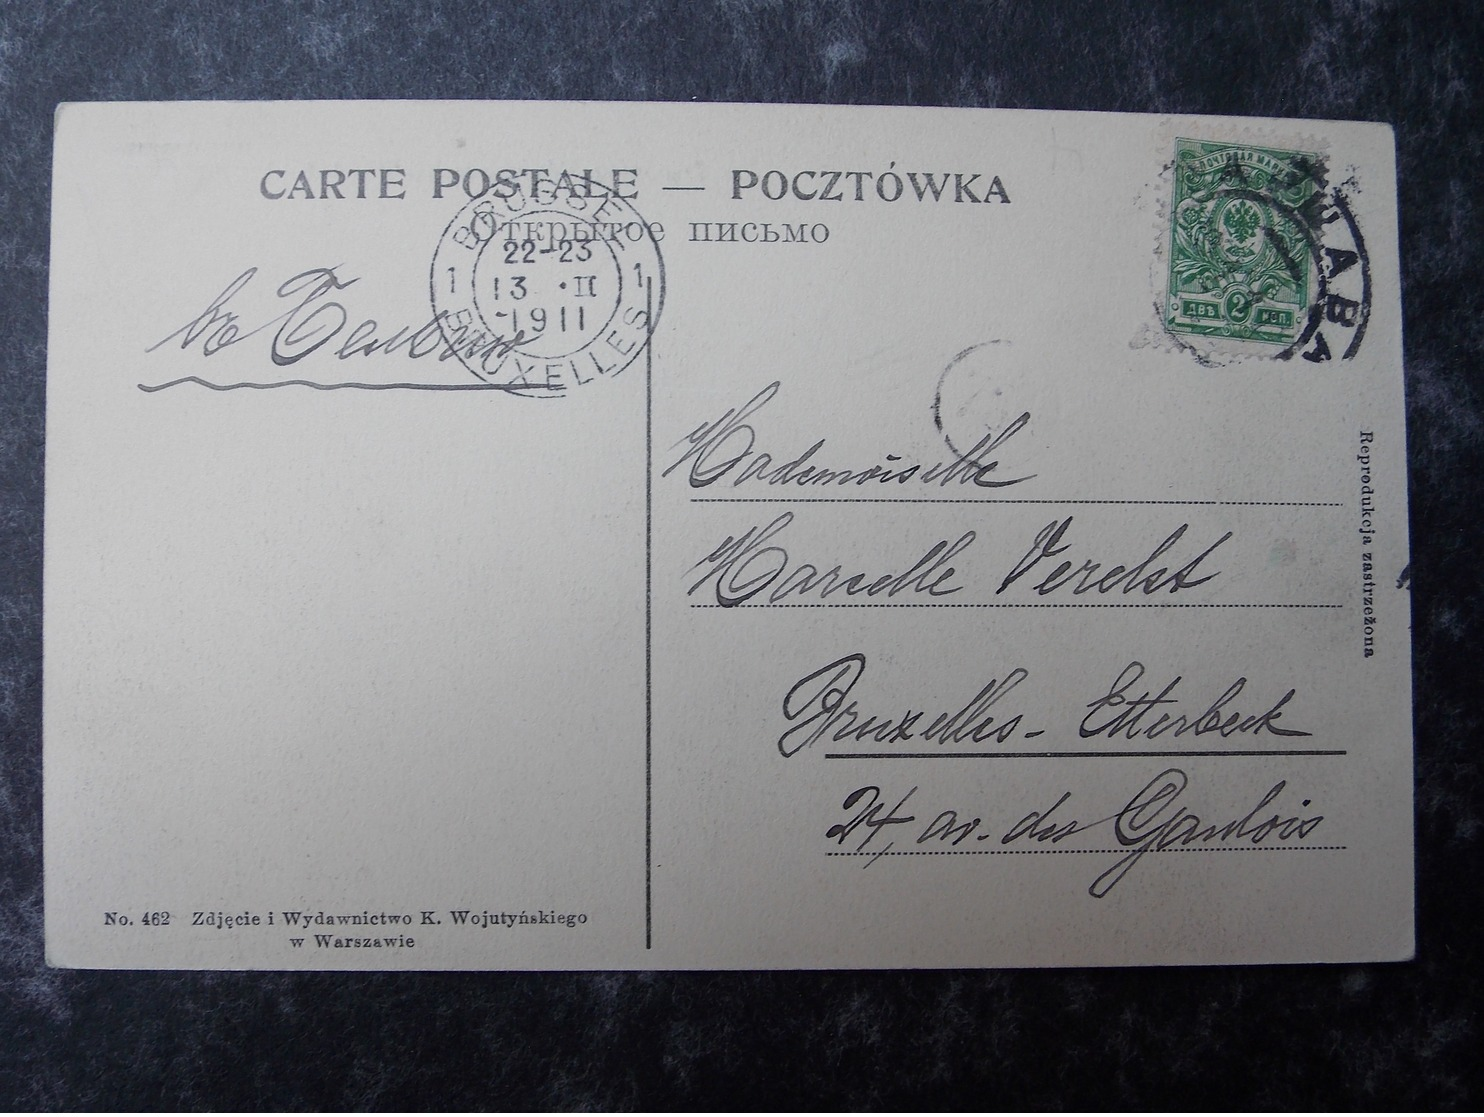 CARTE POSTALE — POCZTÓWKA
Открытое письмо
BRUSSEL
22-23
1 13 · II 1
-1911
BRUXELLES
ПОЧТОВАЯ МАРКА
ДВѢ 2 КОП.
ВАРШАВА
въ
Mademoiselle
Marcelle Verelst
Bruxelles - Etterbeek
24, av. des Gaulois
Reprodukcja zastrzeżona
No. 462 Zdjęcie i Wydawnictwo K. Wojutyńskiego
w Warszawie